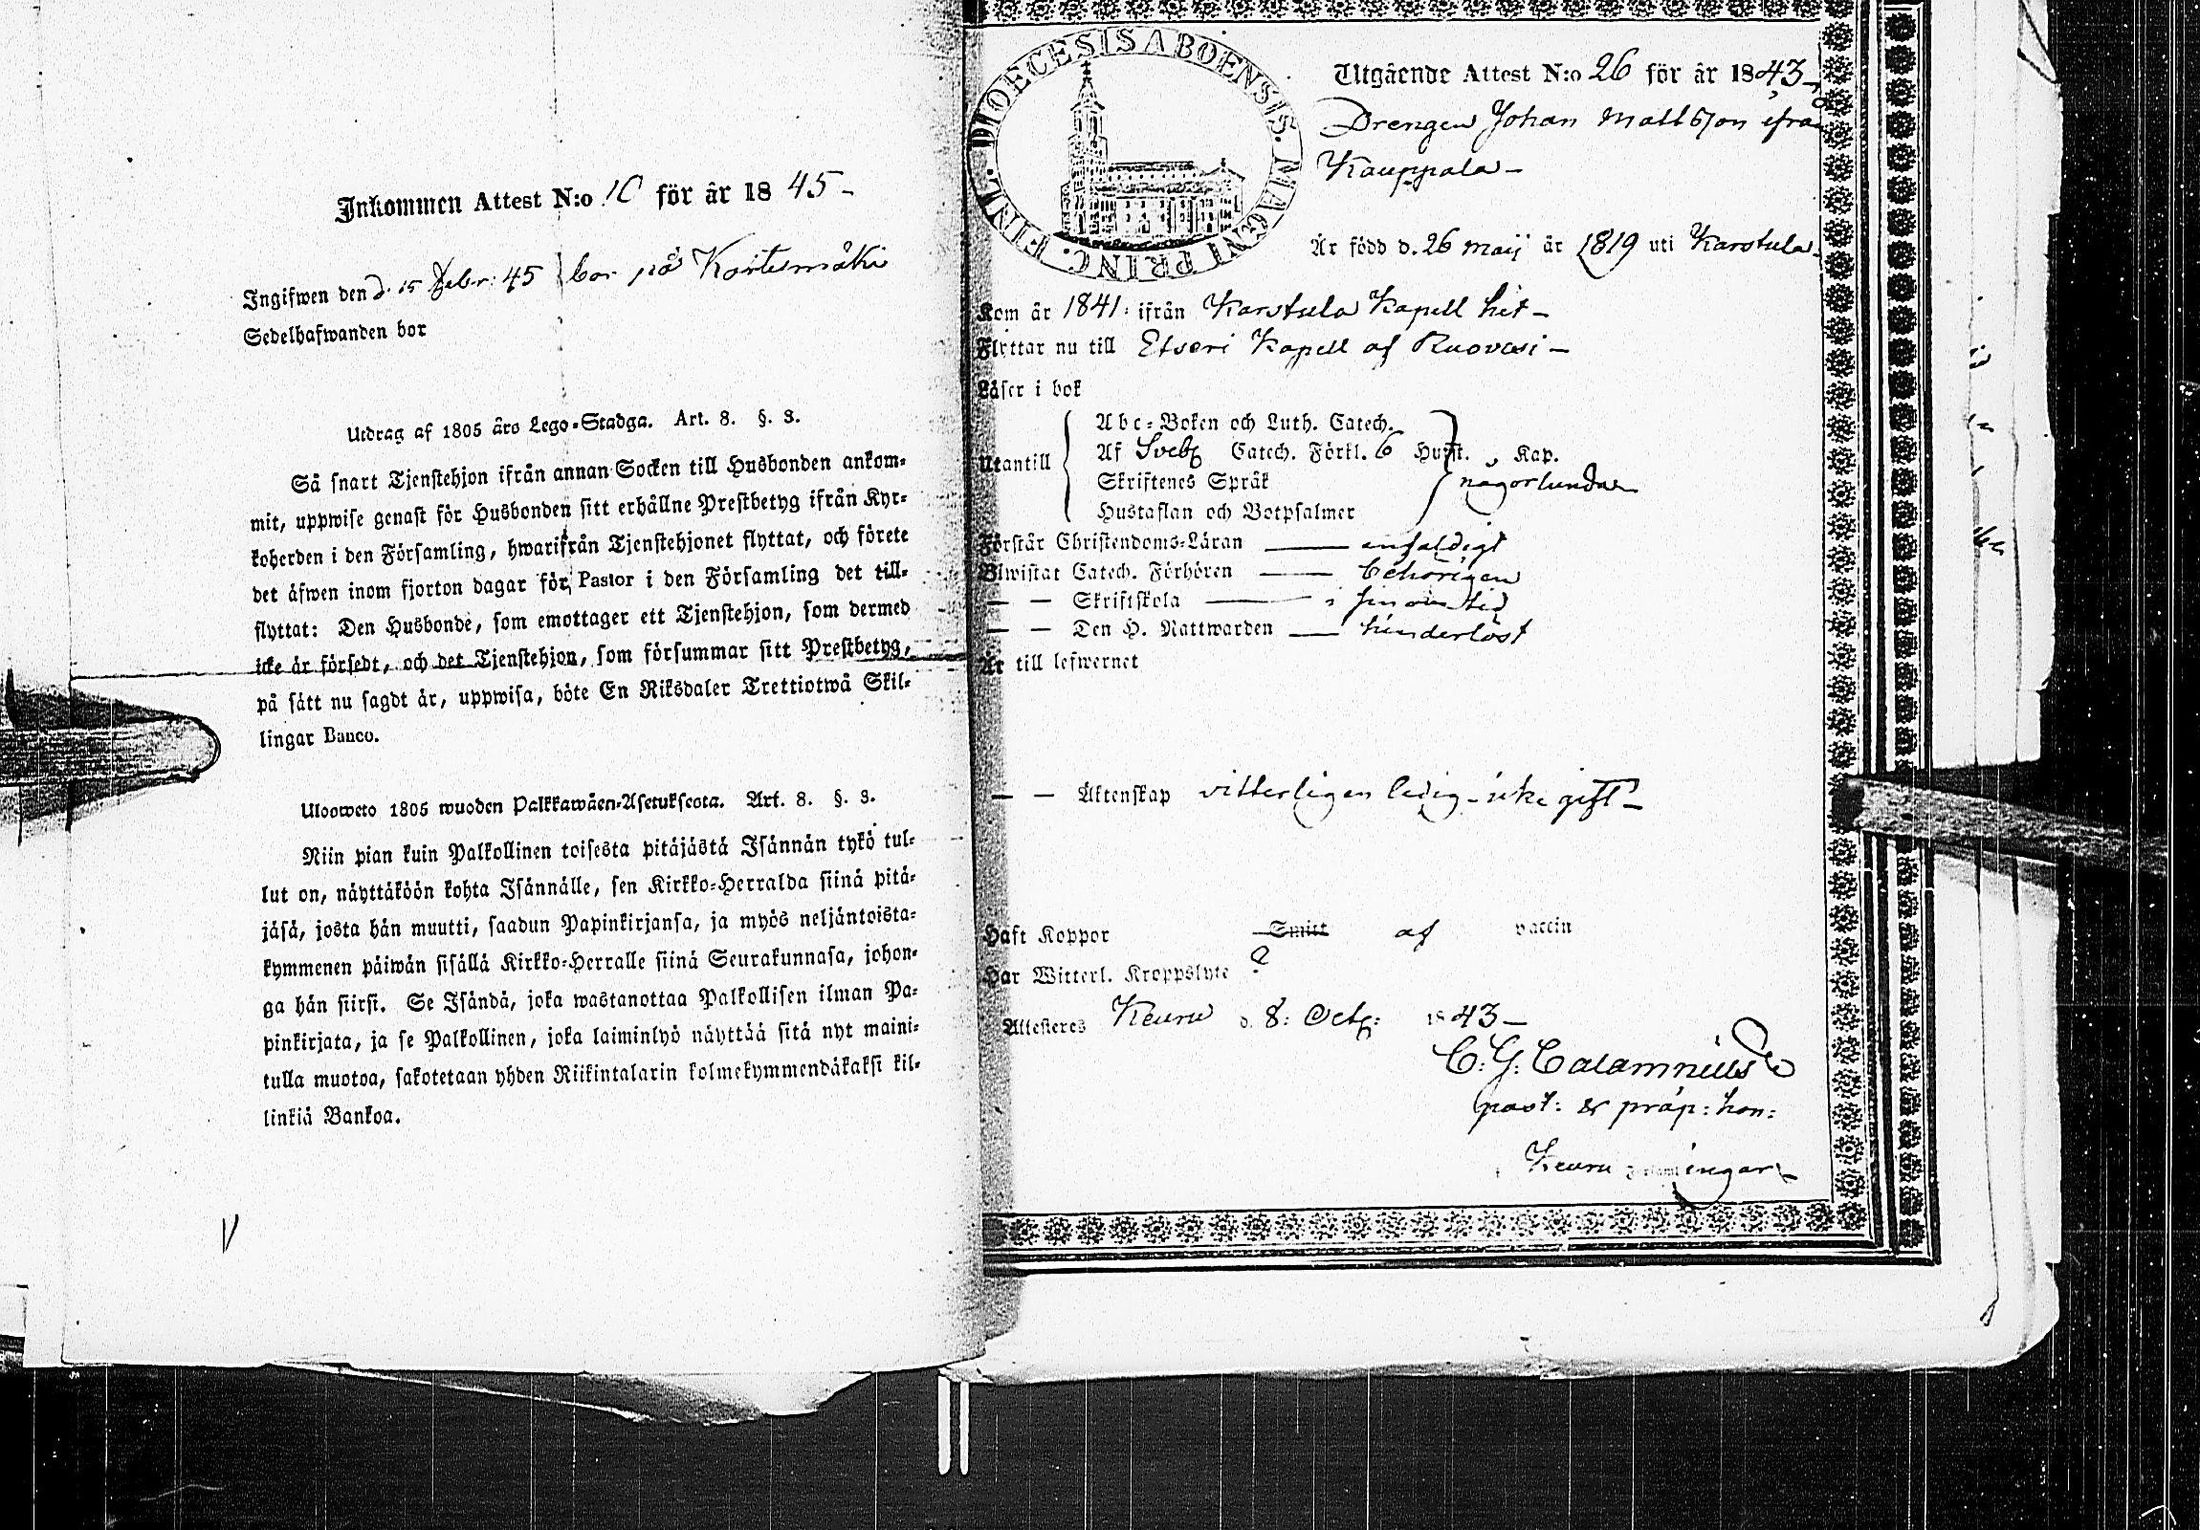 Inkommen Attest N:o 10 för år 1845 -
Ingifwen den d. 15 Febr: 45 bor på Kortesmäki
Sedelhafwanden bor
Utdrag af 1805 års Lego-Stadga. Art. 8. §. 3.
Så snart Tjenstehjon ifrån annan Socken till Husbonden ankom-
mit, uppwise genast för Husbonden sitt erhållne Prestbetyg ifrån Kyr-
koherden i den Församling, hwarifrån Tjenstehjonet flyttat, och förete
det äfwen inom fjorton dagar för Pastor i den Församling det till-
flyttat: Den Husbonde, som emottager ett Tjenstehjon, som dermed
icke är försedt, och det Tjenstehjon, som försummar sitt Prestbetyg,
på sätt nu sagdt är, uppwisa, böte En Riksdaler Trettiotwå Skil-
lingar Banco.
Uloosweto 1805 wuoden Palkkawäen-Asetuksesta. Art. 8. §. 3.
Niin pian kuin Palkollinen toisesta pitäjästä Isännän tykö tul-
lut on, näyttäköön kohta Isännälle, sen Kirkko-Herralda siinä pitä-
jäsä, josta hän muutti, saadun Papinkirjansa, ja myös neljäntoista-
kymmenen päiwän sisällä Kirkko-Herralle siinä Seurakunnasa, johon-
ga hän siirsi. Se Isändä, joka wastanottaa Palkollisen ilman Pa-
pinkirjata, ja se Palkollinen, joka laiminlyö näyttää sitä nyt maini-
tulla muotoa, sakotetaan yhden Riikintalarin kolmekymmendäkaksi kil-
linkiä Bankoa.
DIOECESIS ABOENSIS. MAGNI PRINC. FINL.
Utgående Attest N:o 26 för år 1843 -
Drengen Johan Mattsson ifrån
Kauppala -
Är född d. 26 Maij år 1819 uti Karstula -
Kom år 1841 ifrån Karstula Kapell hit -
Flyttar nu till Etseri Kapell af Ruovesi -
Läser i bok
Abc-Boken och Luth. Catech.
Utantill Af Sveb. Catech. Förkl. 6 Hufst. Kap.
Skriftenes Språk någorlunda
Hustaflan och Botpsalmer
Förstår Christendoms-Läran enfaldigt
Biwistat Catech. Förhören behörigen
— — Skriftskola i sinom tid
— — Den H. Nattwarden hinderlöst
Är till lefwernet
— — Äktenskap vitterligen ledig - icke gift -
Haft Koppor Smitt af vaccin
Har Witterl. Kroppslyte ?
Attesteres Keuru d. 8: Octb: 1843 -
C: G: Calamnius
past: & præp: hon:
Keuru